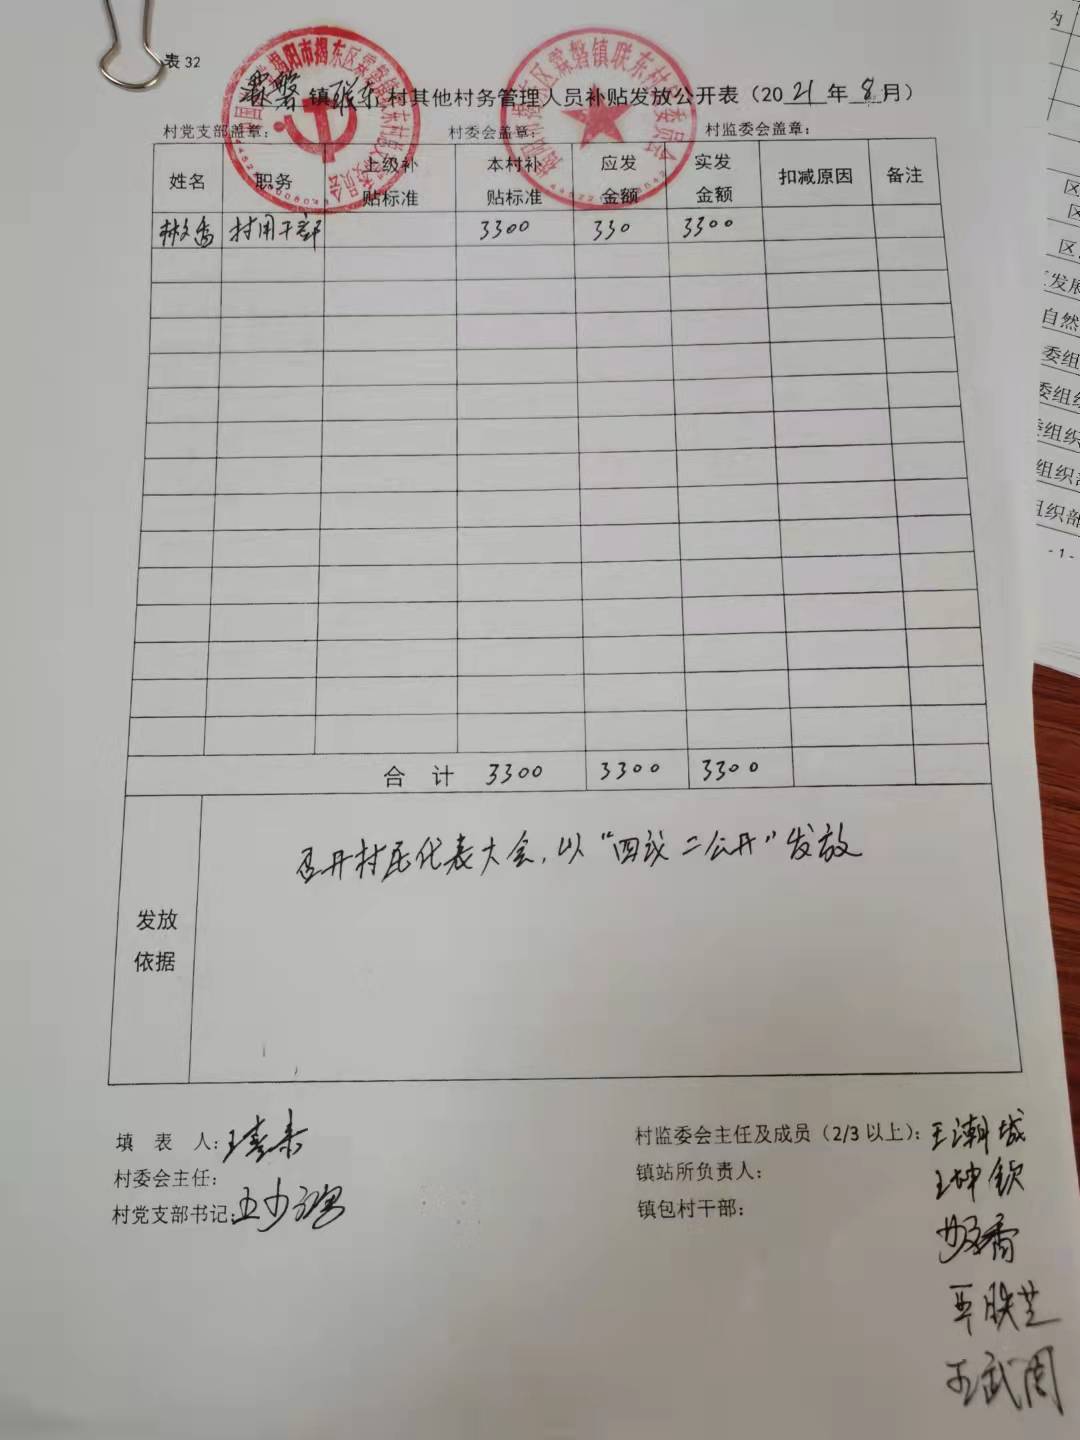 表 32
霖磐 镇 联东 村其他村务管理人员补贴发放公开表（20 21 年 8 月）
村党支部盖章： 村委会盖章： 村监委会盖章：
姓名 职务 上级补贴标准 本村补贴标准 应发金额 实发金额 扣减原因 备注
村用干部 3300 330 3300
合 计 3300 3300 3300
发放依据
召开村民代表大会，以“四议二公开”发放
填 表 人：
村委会主任：
村党支部书记：
村监委会主任及成员（2/3 以上）：王潮城
镇站所负责人： 王坤钦
镇包村干部：
王武周
内
区
区
区
发展
自然
委组
委组织
委组织
组织部
组织部
- 1 -